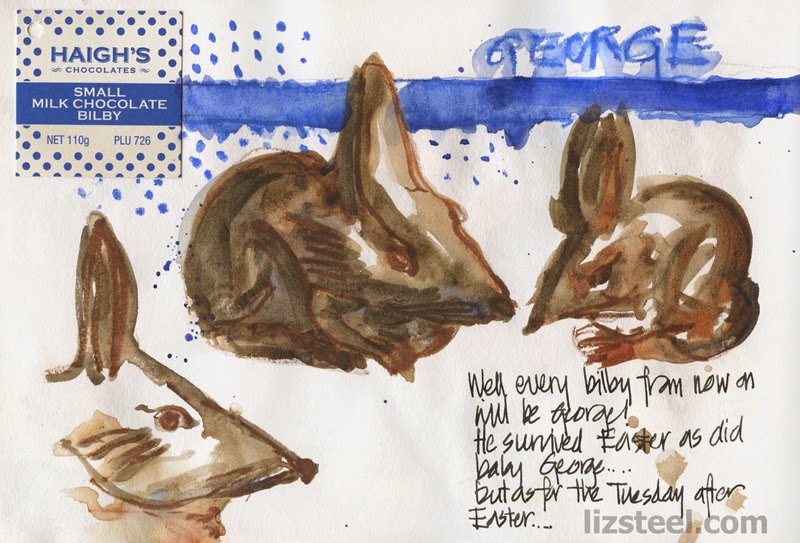 HAIGH'S
CHOCOLATES
SMALL
MILK CHOCOLATE
BILBY
NET 110g PLU 726
GEORGE
Well every bilby from now on
will be George!
He survived Easter as did
baby George....
but as for the Tuesday after
Easter...
lizsteel.com